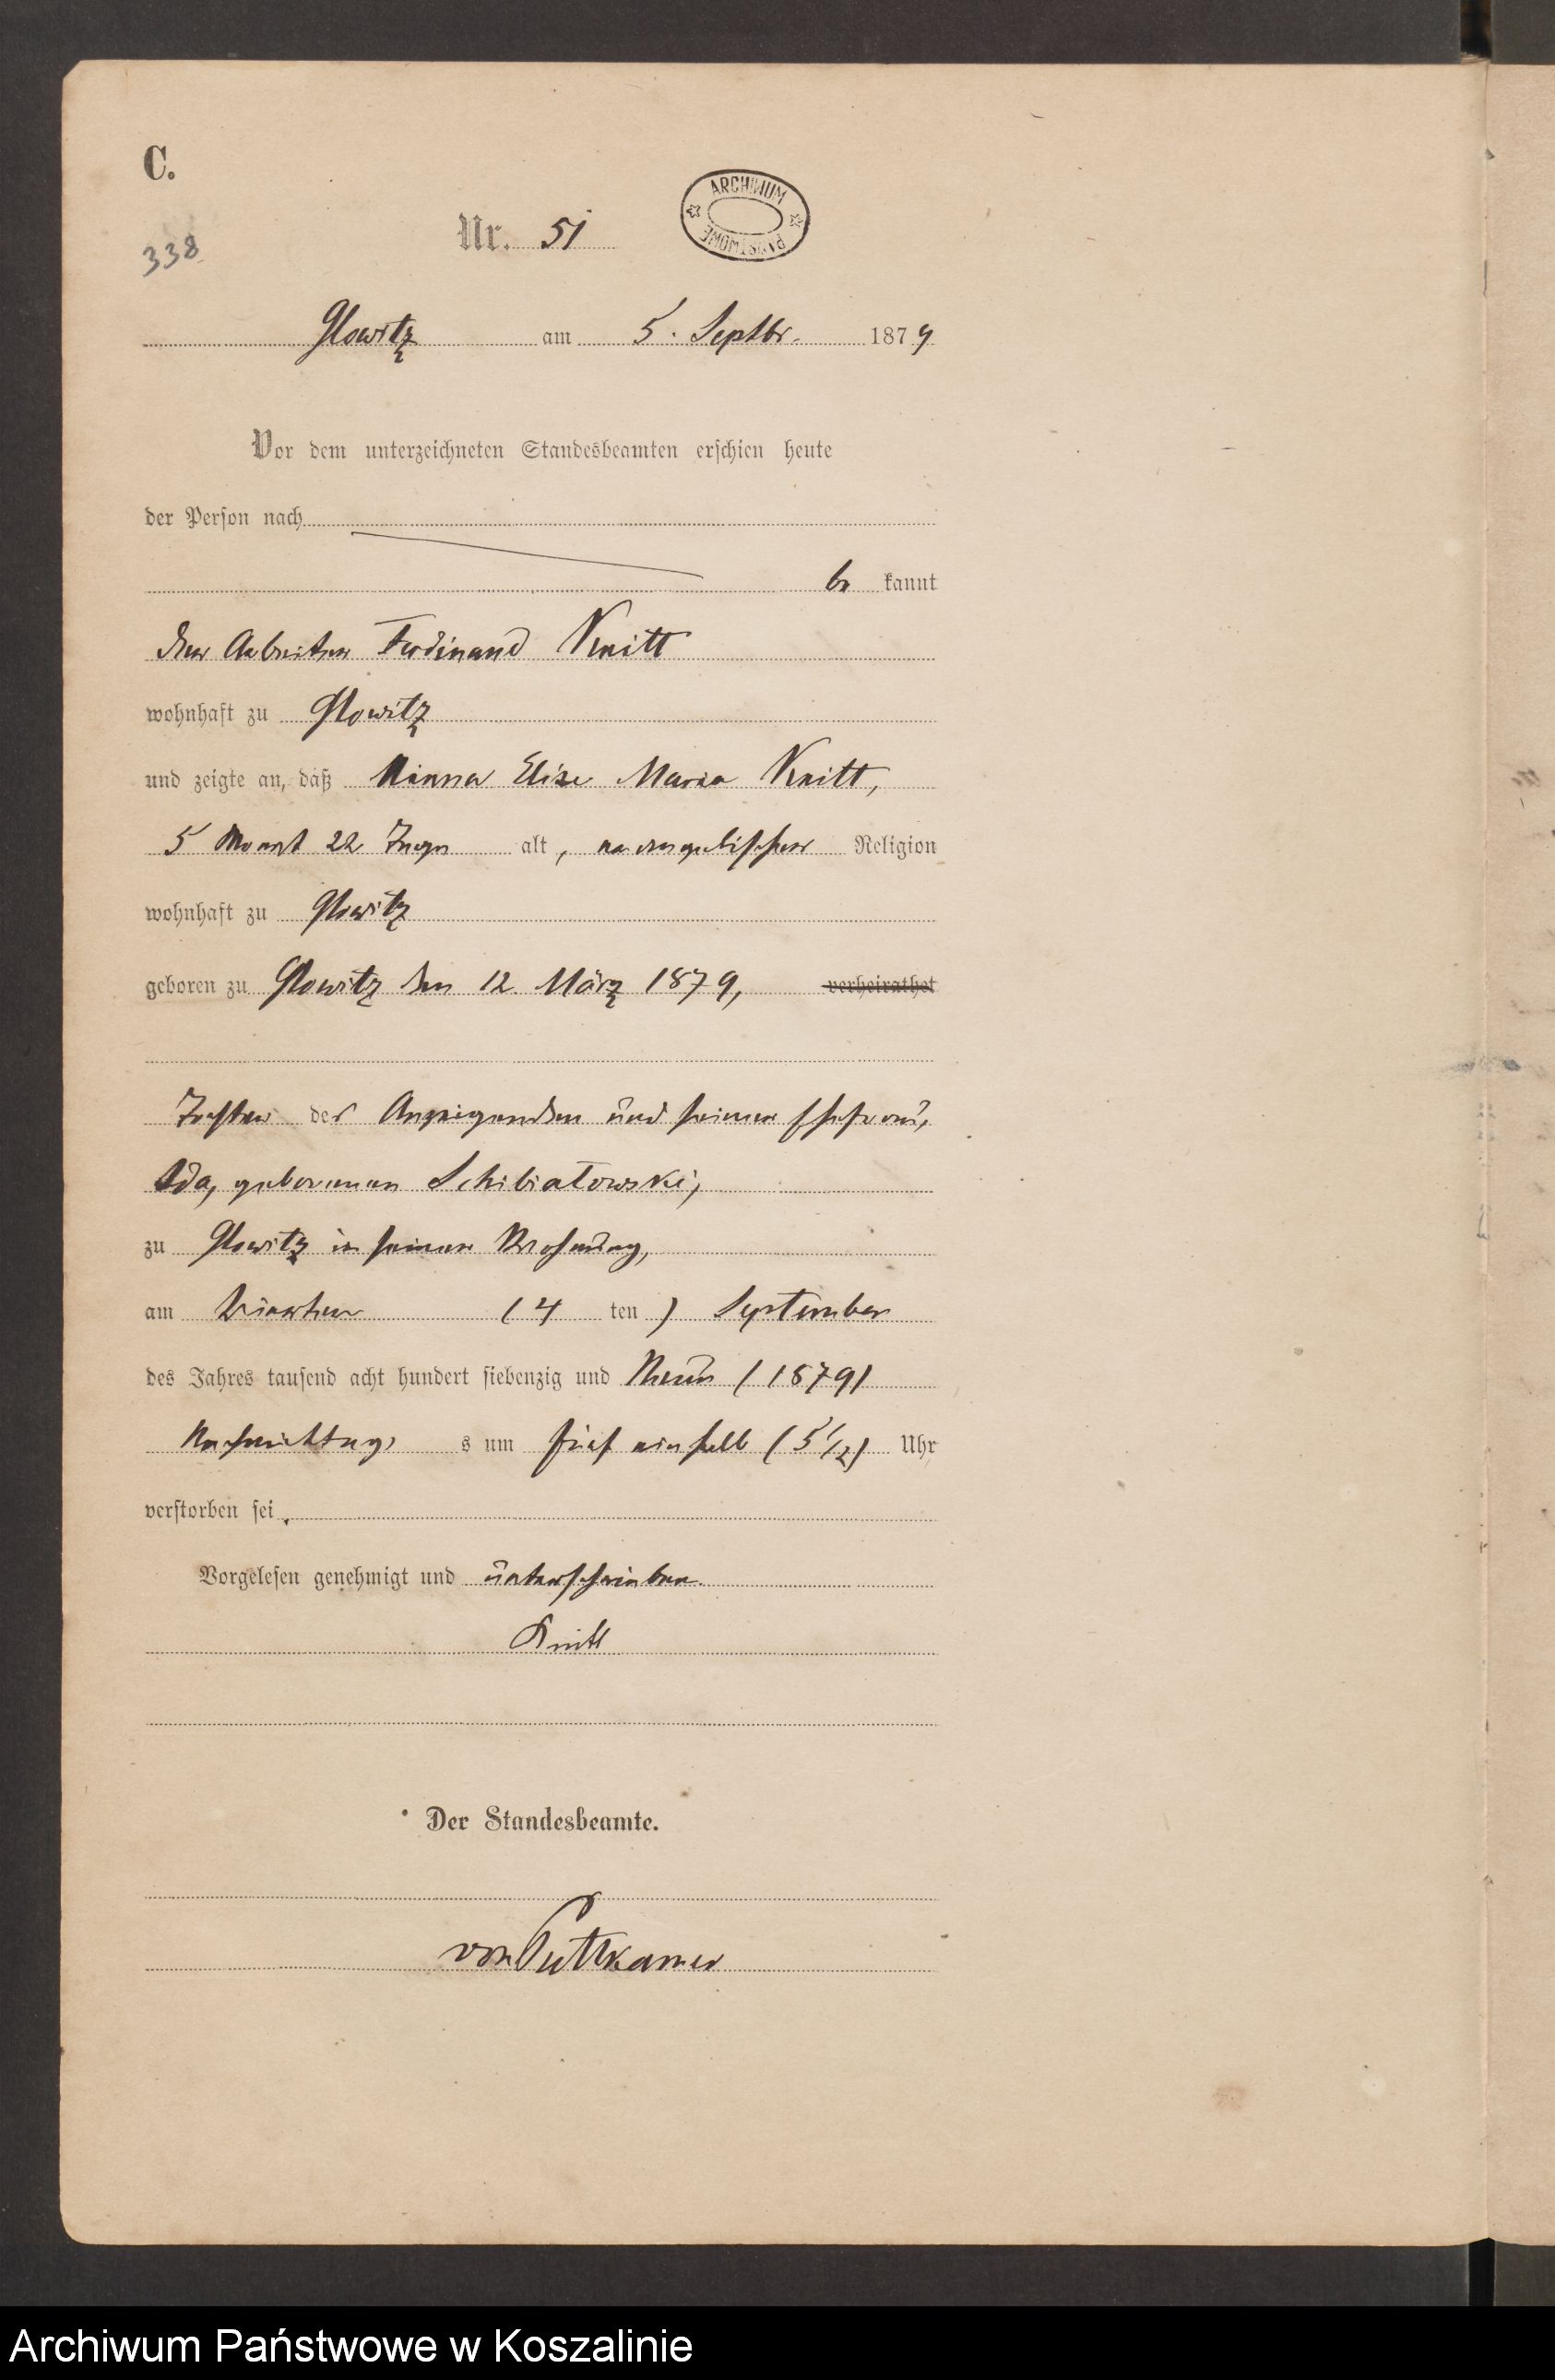 C.
338
Nr. 51
ARCHIWUM PAŃSTWOWE
Glowitz am 5. Septbr. 1879
Vor dem unterzeichneten Standesbeamten erschien heute
der Person nach
be kannt
der Arbeiter Ferdinand Knitt
wohnhaft zu Glowitz
und zeigte an, daß Minna Elise Maria Knitt,
5 Monat 22 Tage alt, evangelischer Religion
wohnhaft zu Glowitz
geboren zu Glowitz den 12. März 1879, verheirathet
Tochter des Anzeigenden und seiner Ehefrau,
Ida, geborenen Schibiatowski,
zu Glowitz in seiner Wohnung,
am vierten (4 ten) September
des Jahres tausend acht hundert siebenzig und Neun (1879)
Nachmittag s um fünf einhalb (5 1/2) Uhr
verstorben sei.
Vorgelesen genehmigt und unterschrieben.
Knitt
Der Standesbeamte.
von Puttkamer
Archiwum Państwowe w Koszalinie